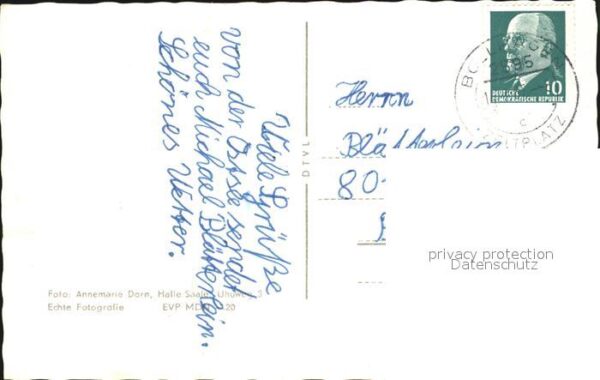 Viele Grüße
von der Ostsee sendet
euch Michael Blätterlein.
Schönes Wetter.
Foto: Annemarie Dorn, Halle Saale,
Echte Fotografie EVP MDN 20
DTVL
Herrn
80
DEUTSCHE
DEMOKRATISCHE REPUBLIK
10
ZELTPLATZ
c
privacy protection
Datenschutz